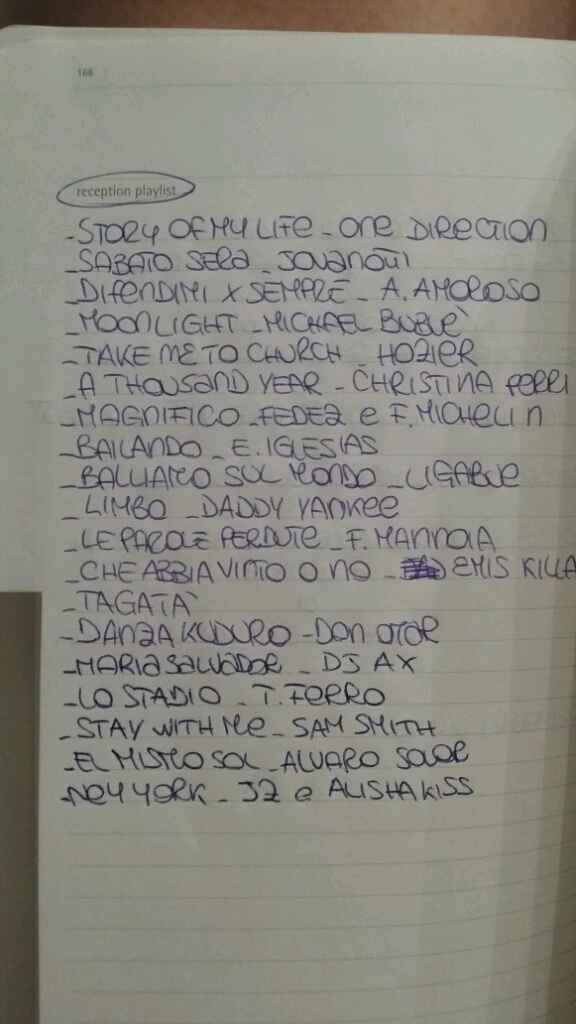 168
reception playlist
-STORY OF MY LIFE - ONE DIRECTION
-SABATO SERA - JOVANOTTI
-DIFENDIMI X SEMPRE - A. AMOROSO
-MOONLIGHT - MICHAEL BUBLÈ
-TAKE ME TO CHURCH - HOZIER
-A THOUSAND YEAR - CHRISTINA PERRI
-MAGNIFICO - FEDEZ e F. MICHELIN
-BAILANDO - E. IGLESIAS
-BALLIAMO SUL MONDO - LIGABUE
-LIMBO - DADDY YANKEE
-LE PAROLE PERDUTE - F. MANNOIA
-CHE ABBIA VINTO O NO - EMIS KILLA
-TAGATÀ
-DANZA KUDURO - DON OTAR
-MARIA SALVADOR - DJ AX
-LO STADIO - T. FERRO
-STAY WITH ME - SAM SMITH
-EL MISMO SOL - ALVARO SOLER
-NEW YORK - JZ e ALISHA KISS